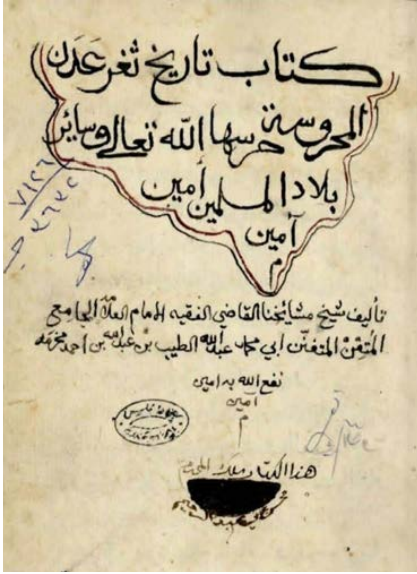 كتاب تاريخ ثغر عدن
المحروسة حرسها الله تعالى وساير
بلاد المسلمين امين
آمين
م
تأليف شيخ مشايخنا القاضي الفقيه الامام العلامة الجامع
المتقن المتفنن ابي محمد عبد الله الطيب بن عبد الله بن احمد مخرمه
نفع الله به امين
آمين
م
هذا الكتاب ملك